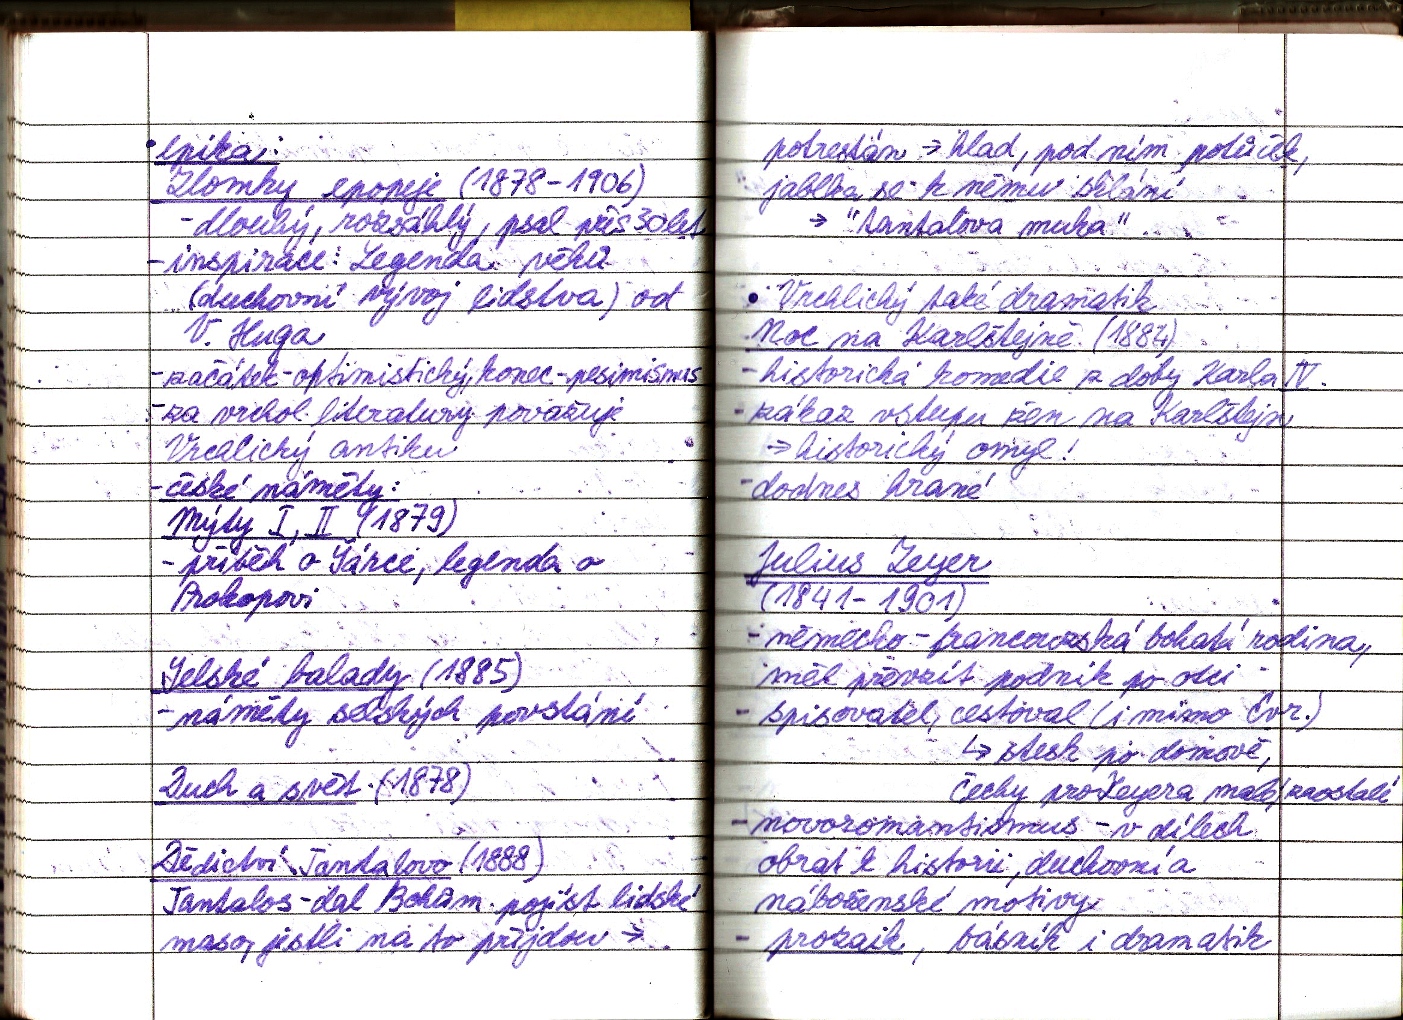 • epika:
Zlomky epopeje (1878-1906)
- dlouhý, rozsáhlý, psal přes 30 let
- inspirace: Legenda věků
(duchovní vývoj lidstva) od
V. Huga
- začátek - optimistický, konec - pesimismus
- za vrchol literatury považuje
Vrchlický antiku
- české náměty:
Mýty I, II (1879)
- příběh o Šárce, legenda o
Prokopovi
Selské balady (1885)
- náměty selských povstání
Duch a svět (1878)
Dědictví Tantalovo (1888)
Tantalos - dal Bohům pojíst lidské
maso, jestli na to přijdou →
potrestán → hlad, pod ním potůček,
jablka se k němu sklání
→ "Tantalova muka"
• Vrchlický také dramatik
Noc na Karlštejně (1884)
- historická komedie z doby Karla IV.
- zákaz vstupu žen na Karlštejn
→ historický omyl!
- dodnes hrané
Julius Zeyer
(1841-1901)
- německo-francouzská bohatá rodina,
měl převzít podnik po otci
- spisovatel, cestoval (i mimo Evr.)
↳ stesk po domově,
Čechy pro Zeyera malé, zaostalé
- novoromantismus - v dílech
obrat k historii, duchovní a
náboženské motivy
- prozaik, básník i dramatik